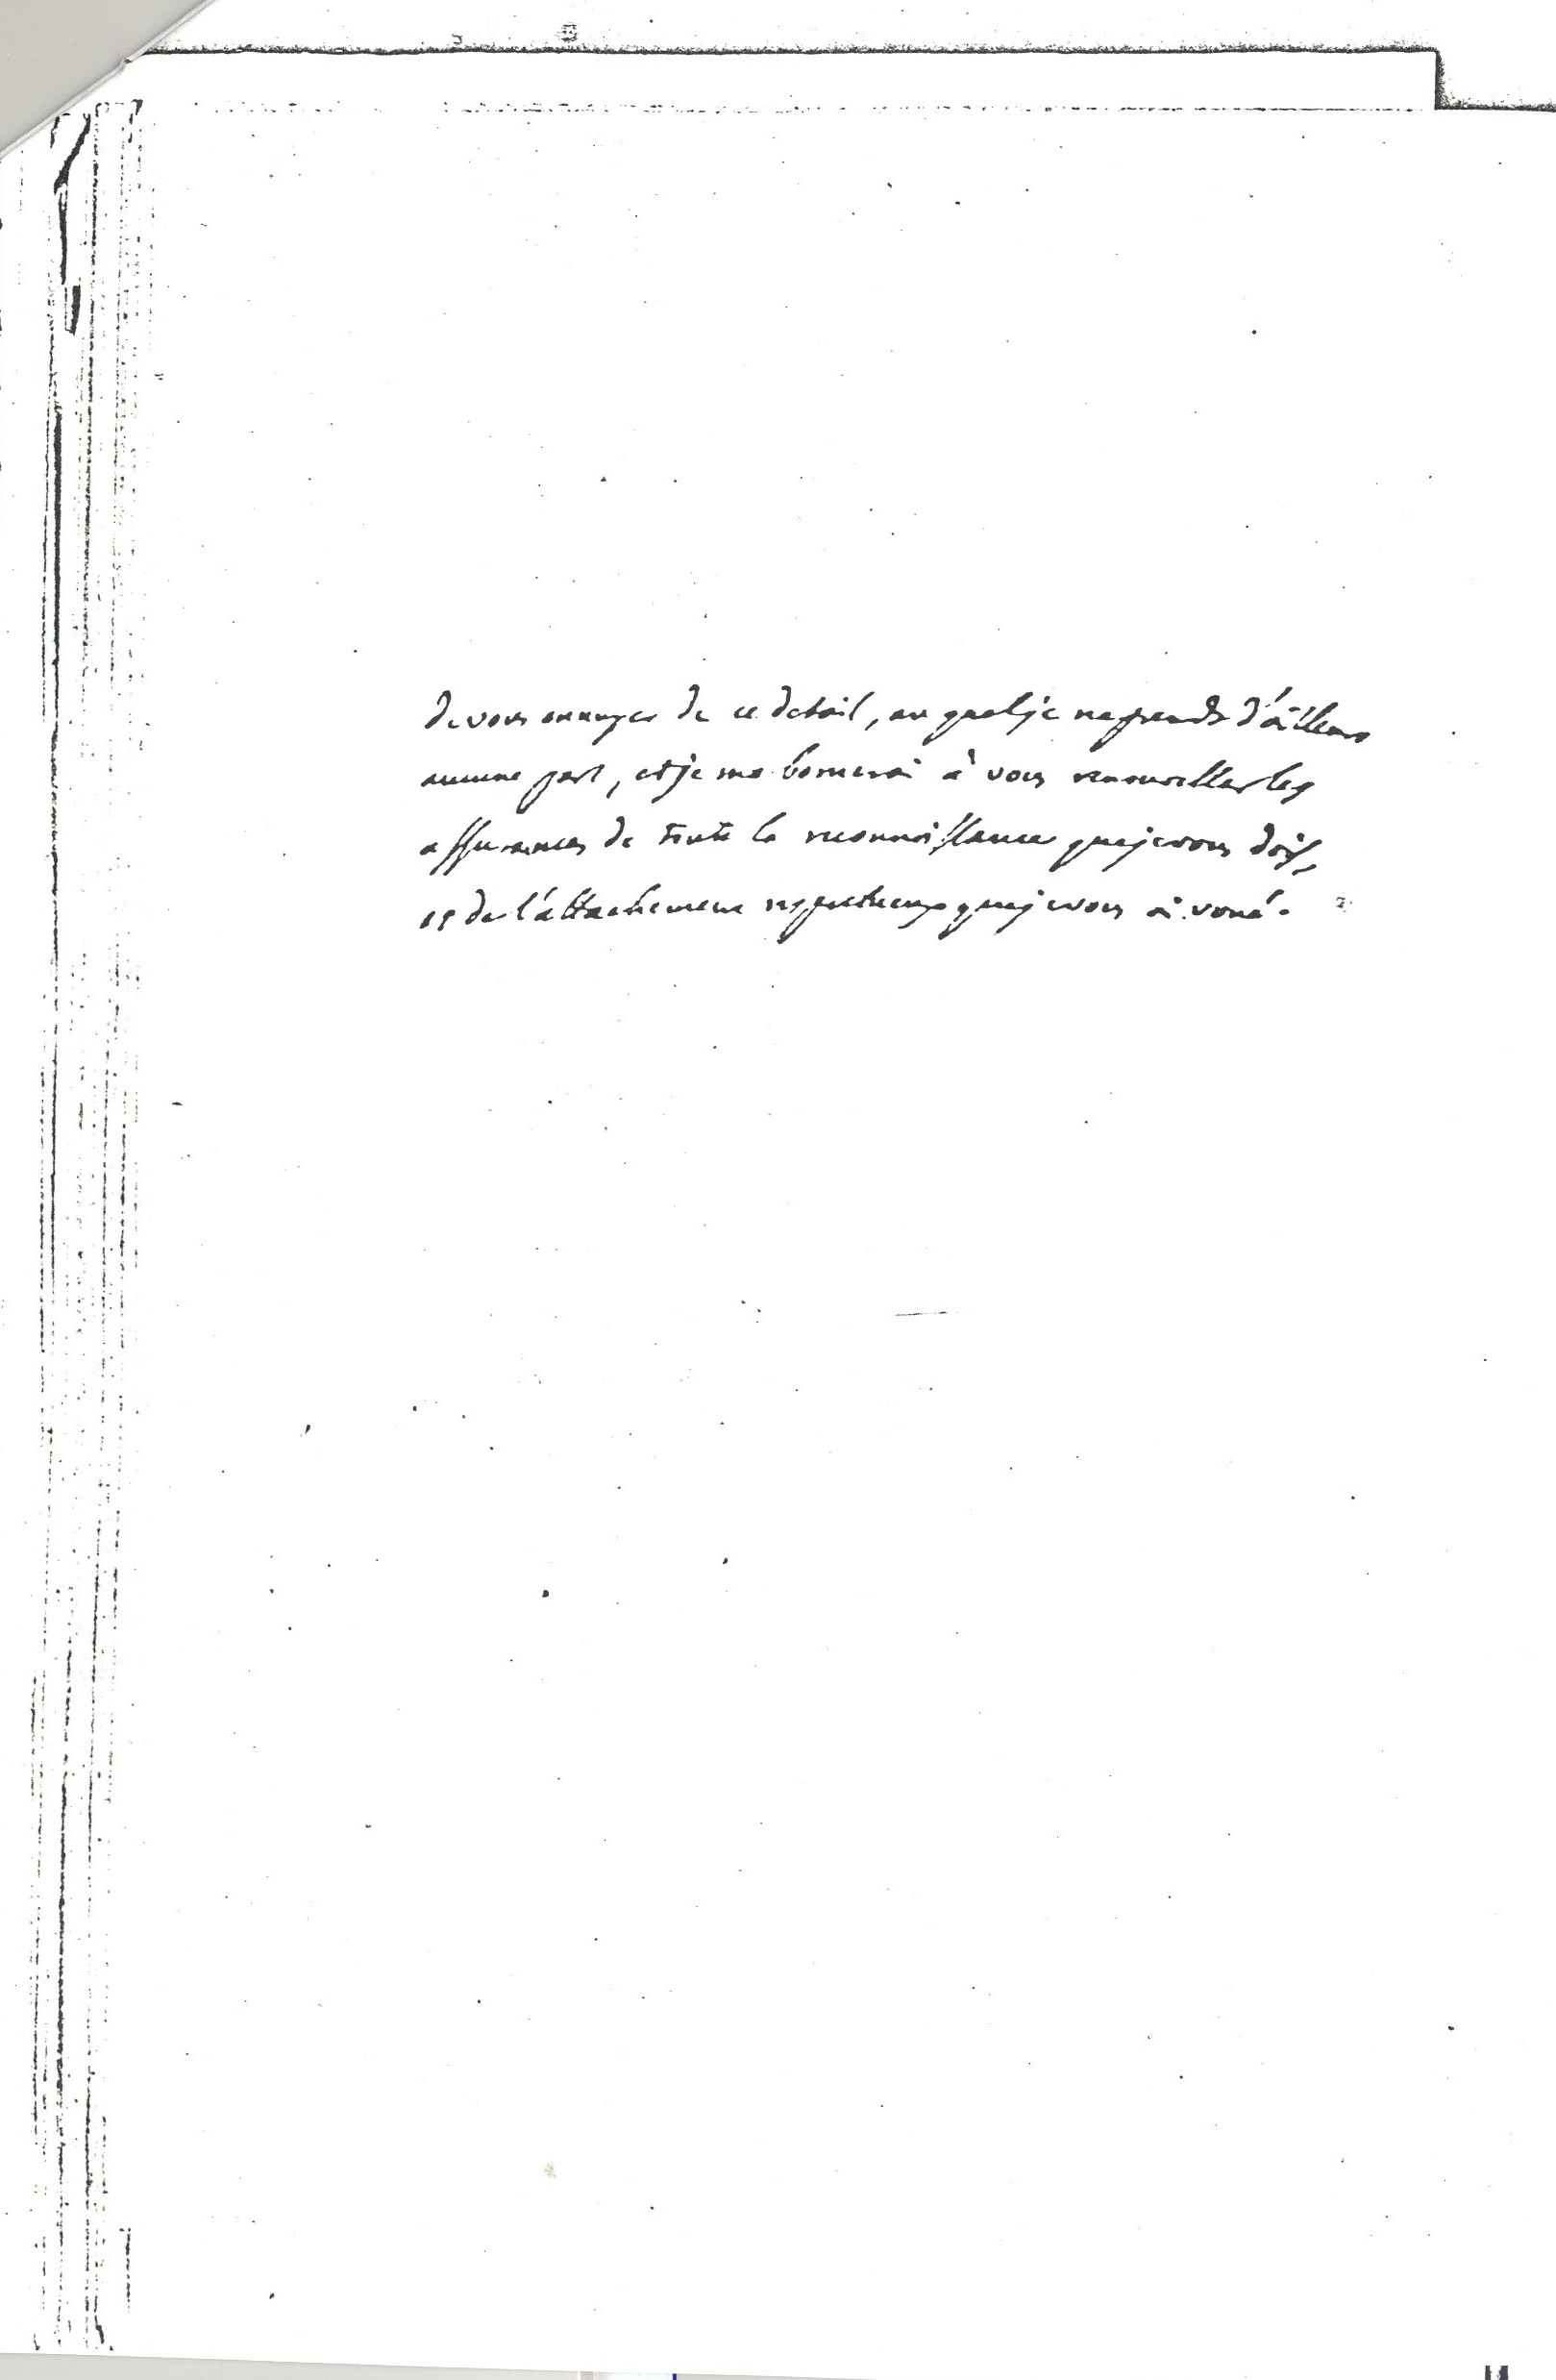 de vous ennuyer de ce detail, au quel je ne prends d'ailleurs
aucune part, et je me bornerai à vous renouveller les
assurances de toute la reconnoissance que je vous dois,
et de l'attachement respectueux que je vous ai voué.